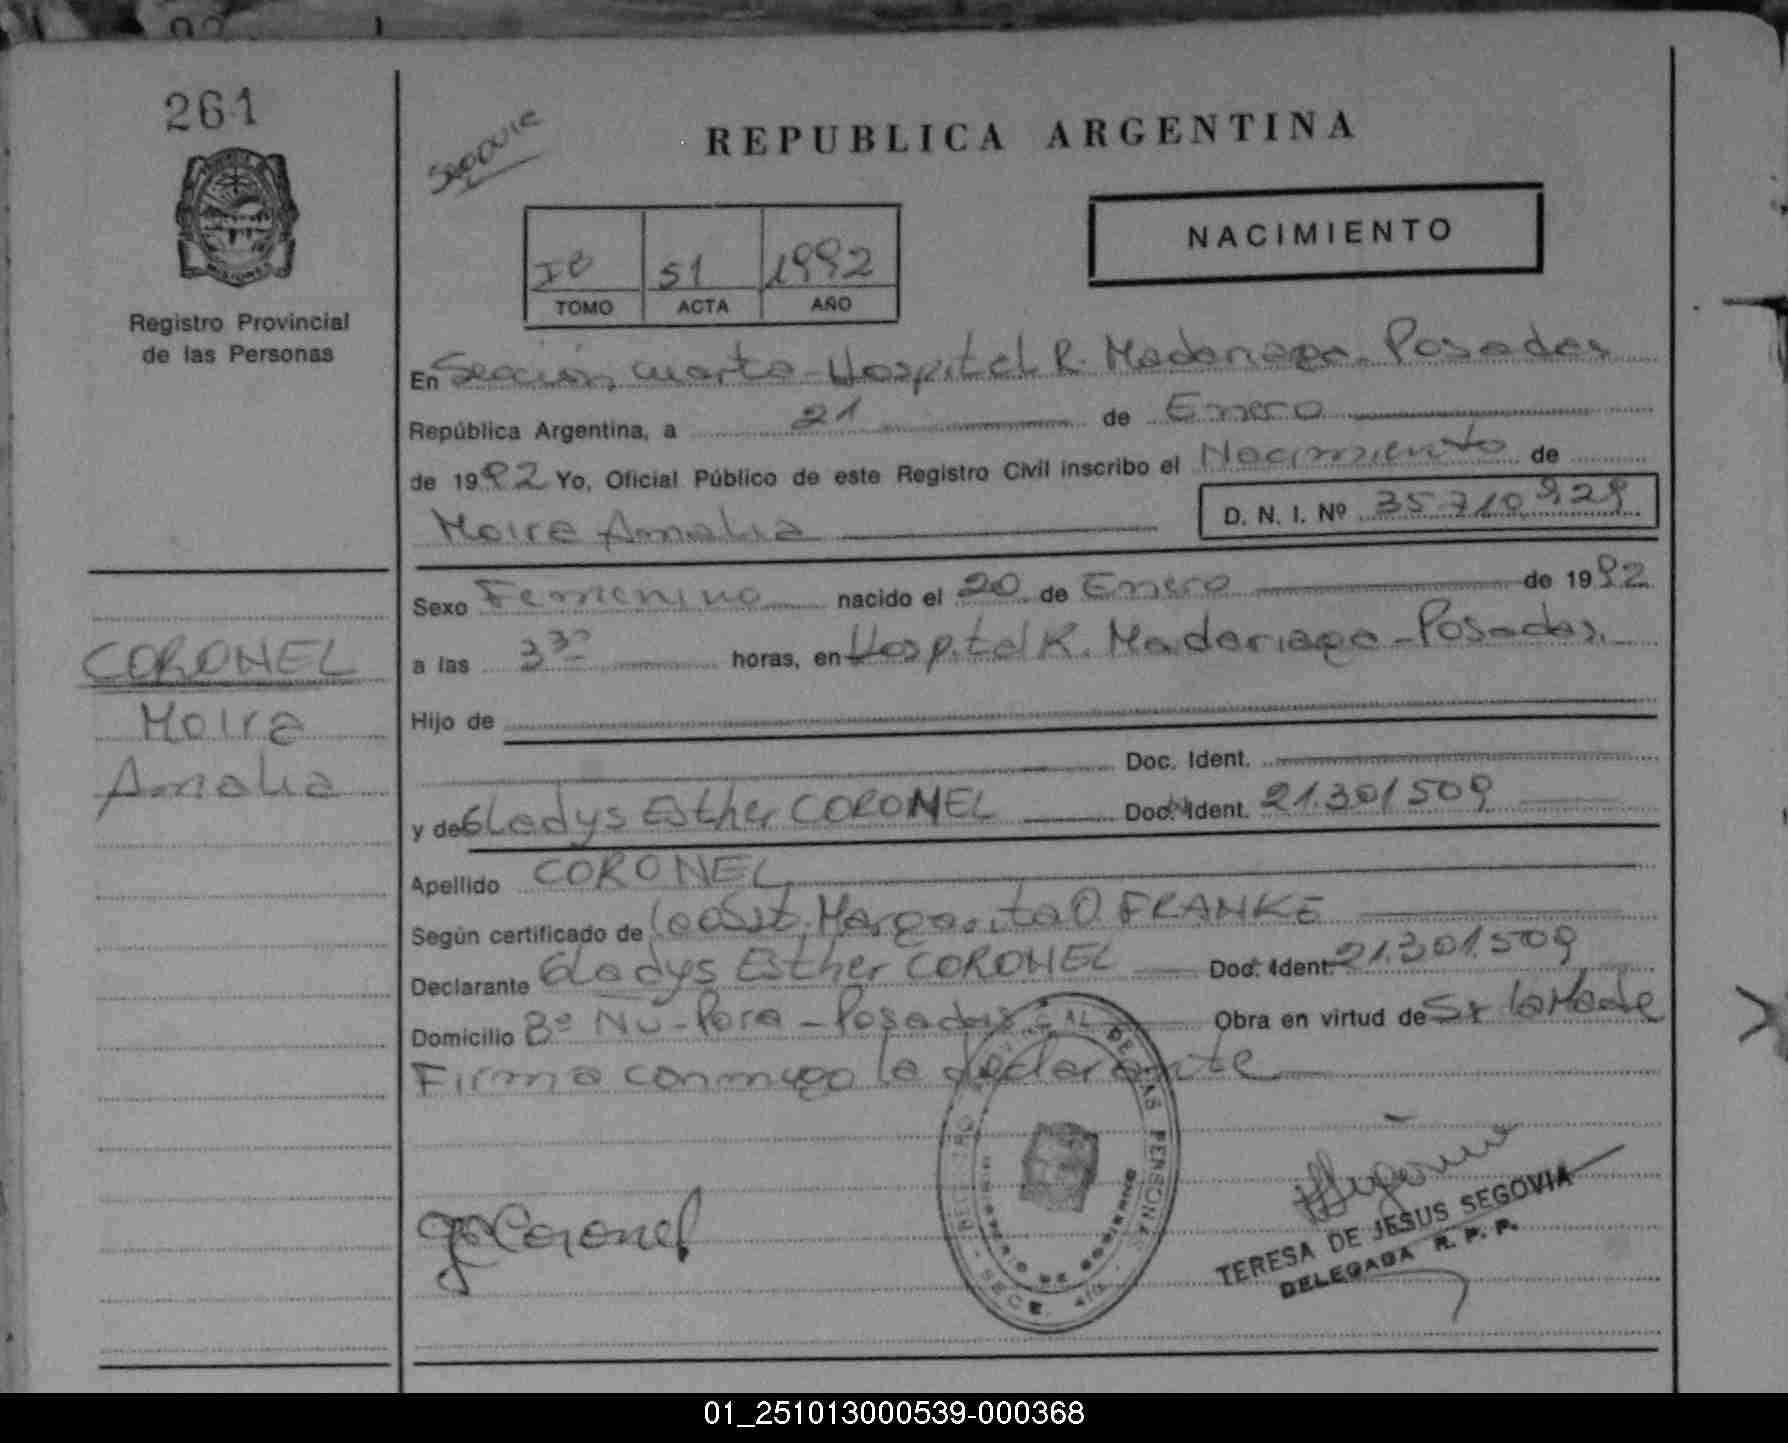 261
REPUBLICA ARGENTINA
NACIMIENTO
51 1992
TOMO ACTA AÑO
Registro Provincial
de las Personas
En Sección cuarta - Hospital R. Madariaga - Posadas
República Argentina, a 21 de Enero
de 1992 Yo, Oficial Público de este Registro Civil inscribo el Nacimiento de
Moira Amalia D. N. I. Nº 35.710.929
CORONEL
Moira
Amalia
Sexo Femenino nacido el 20 de Enero de 1992
a las 3 30 horas, en Hospital R. Madariaga - Posadas.
Hijo de
Doc. Ident.
y de Gladys Esther CORONEL Doc. Ident. 21.301509
Apellido CORONEL
Según certificado de la Obst. Margarita O. FRANKE
Declarante Gladys Esther CORONEL Doc. Ident. 21.301.509
Domicilio Bº Ñu-Pora - Posadas Obra en virtud de Sr la Madre
Firma conmigo la declarante
REGISTRO PROVINCIAL DE LAS PERSONAS
MINISTERIO DE GOBIERNO
SECC. 4ta.
Coronel
TERESA DE JESUS SEGOVIA
DELEGADA R. P. P.
01_251013000539-000368